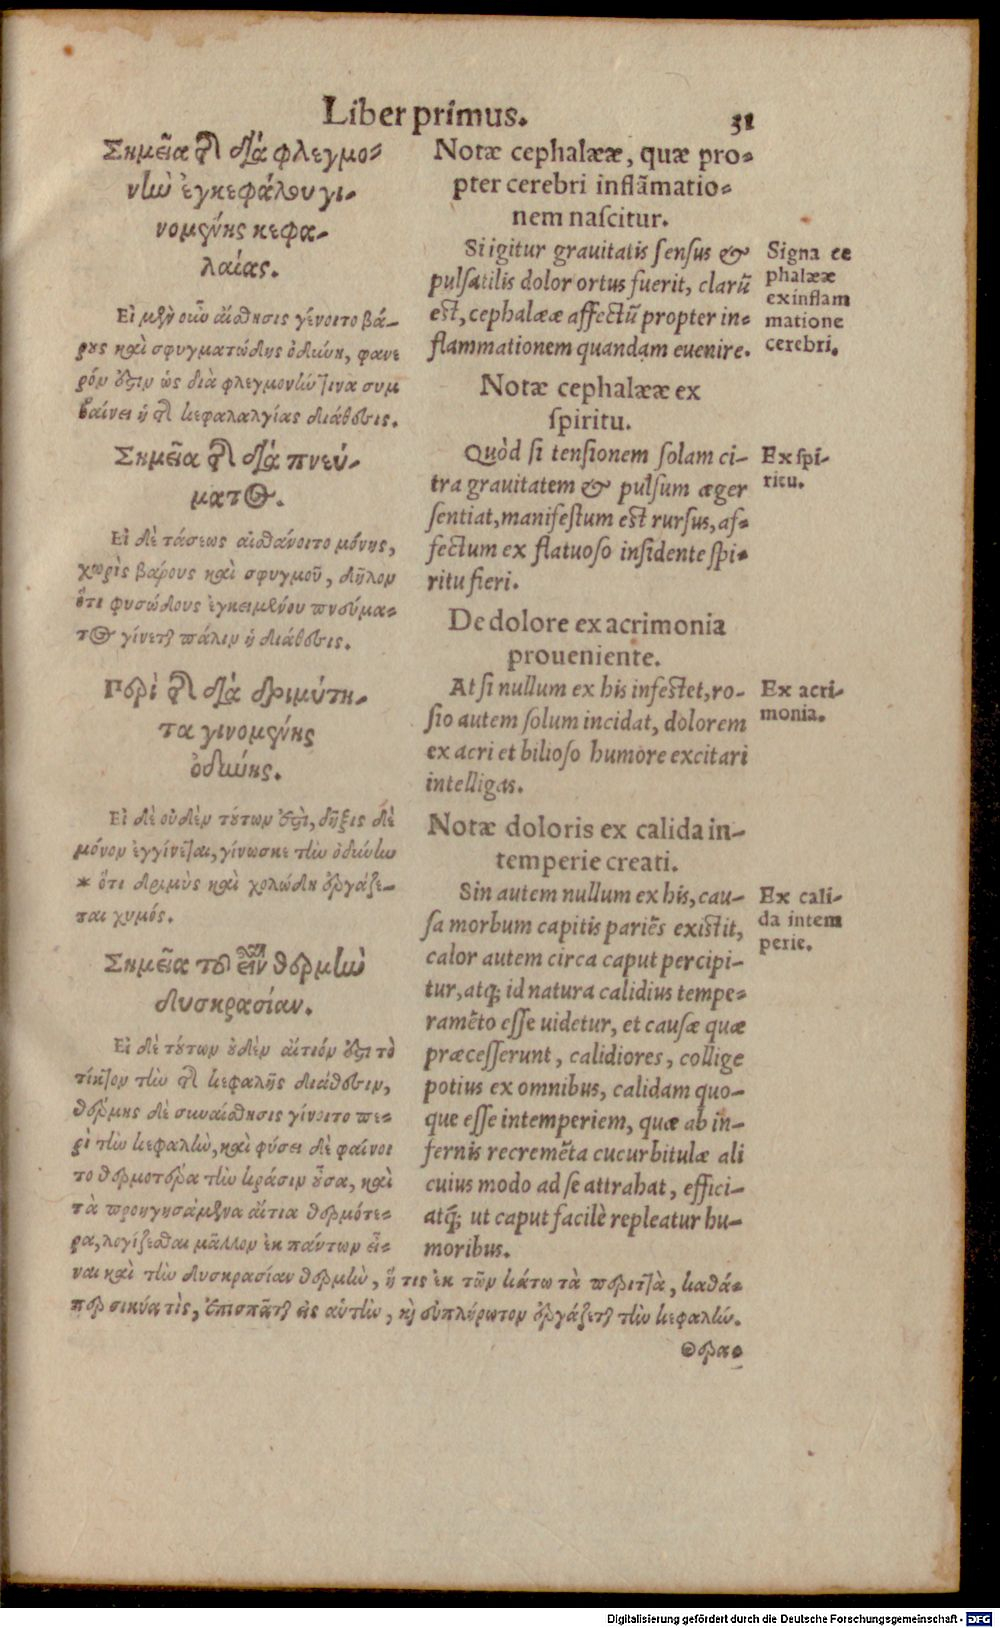 Liber primus.
31
Σημεῖα τῆς διὰ φλεγμο-
νὴν ἐγκεφάλου γι-
νομένης κεφα-
λαίας.
Εἰ μὲν οὖν αἴσθησις γένοιτο βά-
ρους καὶ σφυγματώδης ὀδύνη, φανε
ρόν ἐστιν ὡς διὰ φλεγμονήν τινα συμ
βαίνει ἡ τῆς κεφαλαλγίας διάθεσις.
Σημεῖα τῆς διὰ πνεύ-
ματος.
Εἰ δὲ τάσεως αἰσθάνοιτο μόνης,
χωρὶς βάρους καὶ σφυγμοῦ, δῆλον
ὅτι φυσώδους ἐγκειμένου πνεύμα-
τος γίνεται πάλιν ἡ διάθεσις.
Περὶ τῆς διὰ δριμύτη-
τα γινομένης
ὀδύνης.
Εἰ δὲ οὐδὲν τούτων ἐστὶ, δῆξις δὲ
μόνον ἐγγίνεται, γίνωσκε τὴν ὀδύνην
* ὅτι δριμὺς καὶ χολώδη ἐργάζε-
ται χυμός.
Σημεῖα τοῦ εἶναι θερμὴν
δυσκρασίαν.
Εἰ δὲ τούτων οὐδὲν αἴτιόν ἐστι τὸ
τίκτον τὴν τῆς κεφαλῆς διάθεσιν,
θέρμης δὲ συναίσθησις γίνοιτο πε-
ρὶ τὴν κεφαλὴν, καὶ φύσει δὲ φαίνοι
το θερμοτέρα τὴν κρᾶσιν οὖσα, καὶ
τὰ προηγησάμενα αἴτια θερμότε-
ρα, λογίζεσθαι μᾶλλον ἐκ πάντων εἶ-
ναι καὶ τὴν δυσκρασίαν θερμὴν, ἥ τις ἐκ τῶν κάτω τὰ περιττὰ, καθά-
περ σικύα τὶς, ἐπισπᾶται εἰς αὐτὴν, καὶ εὐπλήρωτον ἐργάζεται τὴν κεφαλήν.
Notæ cephalææ, quæ pro-
pter cerebri inflāmatio-
nem nascitur.
Si igitur grauitatis sensus &
pulsatilis dolor ortus fuerit, clarū
est, cephalææ affectū propter in-
flammationem quandam euenire.
Signa ce
phalææ
ex inflam
matione
cerebri.
Notæ cephalææ ex
spiritu.
Quòd si tensionem solam ci-
tra grauitatem & pulsum æger
sentiat, manifestum est rursus, af-
fectum ex flatuoso insidente spi-
ritu fieri.
Ex spi-
ritu.
De dolore ex acrimonia
proueniente.
At si nullum ex his infestet, ro-
sio autem solum incidat, dolorem
ex acri et bilioso humore excitari
intelligas.
Ex acri-
monia.
Notæ doloris ex calida in-
temperie creati.
Sin autem nullum ex his, cau-
sa morbum capitis pariēs existit,
calor autem circa caput percipi-
tur, atq; id natura calidius tempe-
ramēto esse uidetur, et causæ quæ
præcesserunt, calidiores, collige
potius ex omnibus, calidam quo-
que esse intemperiem, quæ ab in-
fernis recremēta cucurbitulæ ali
cuius modo ad se attrahat, effici-
atq; ut caput facilè repleatur hu-
moribus.
Ex cali-
da intem
perie.
Θερα-
Digitalisierung gefördert durch die Deutsche Forschungsgemeinschaft - DFG